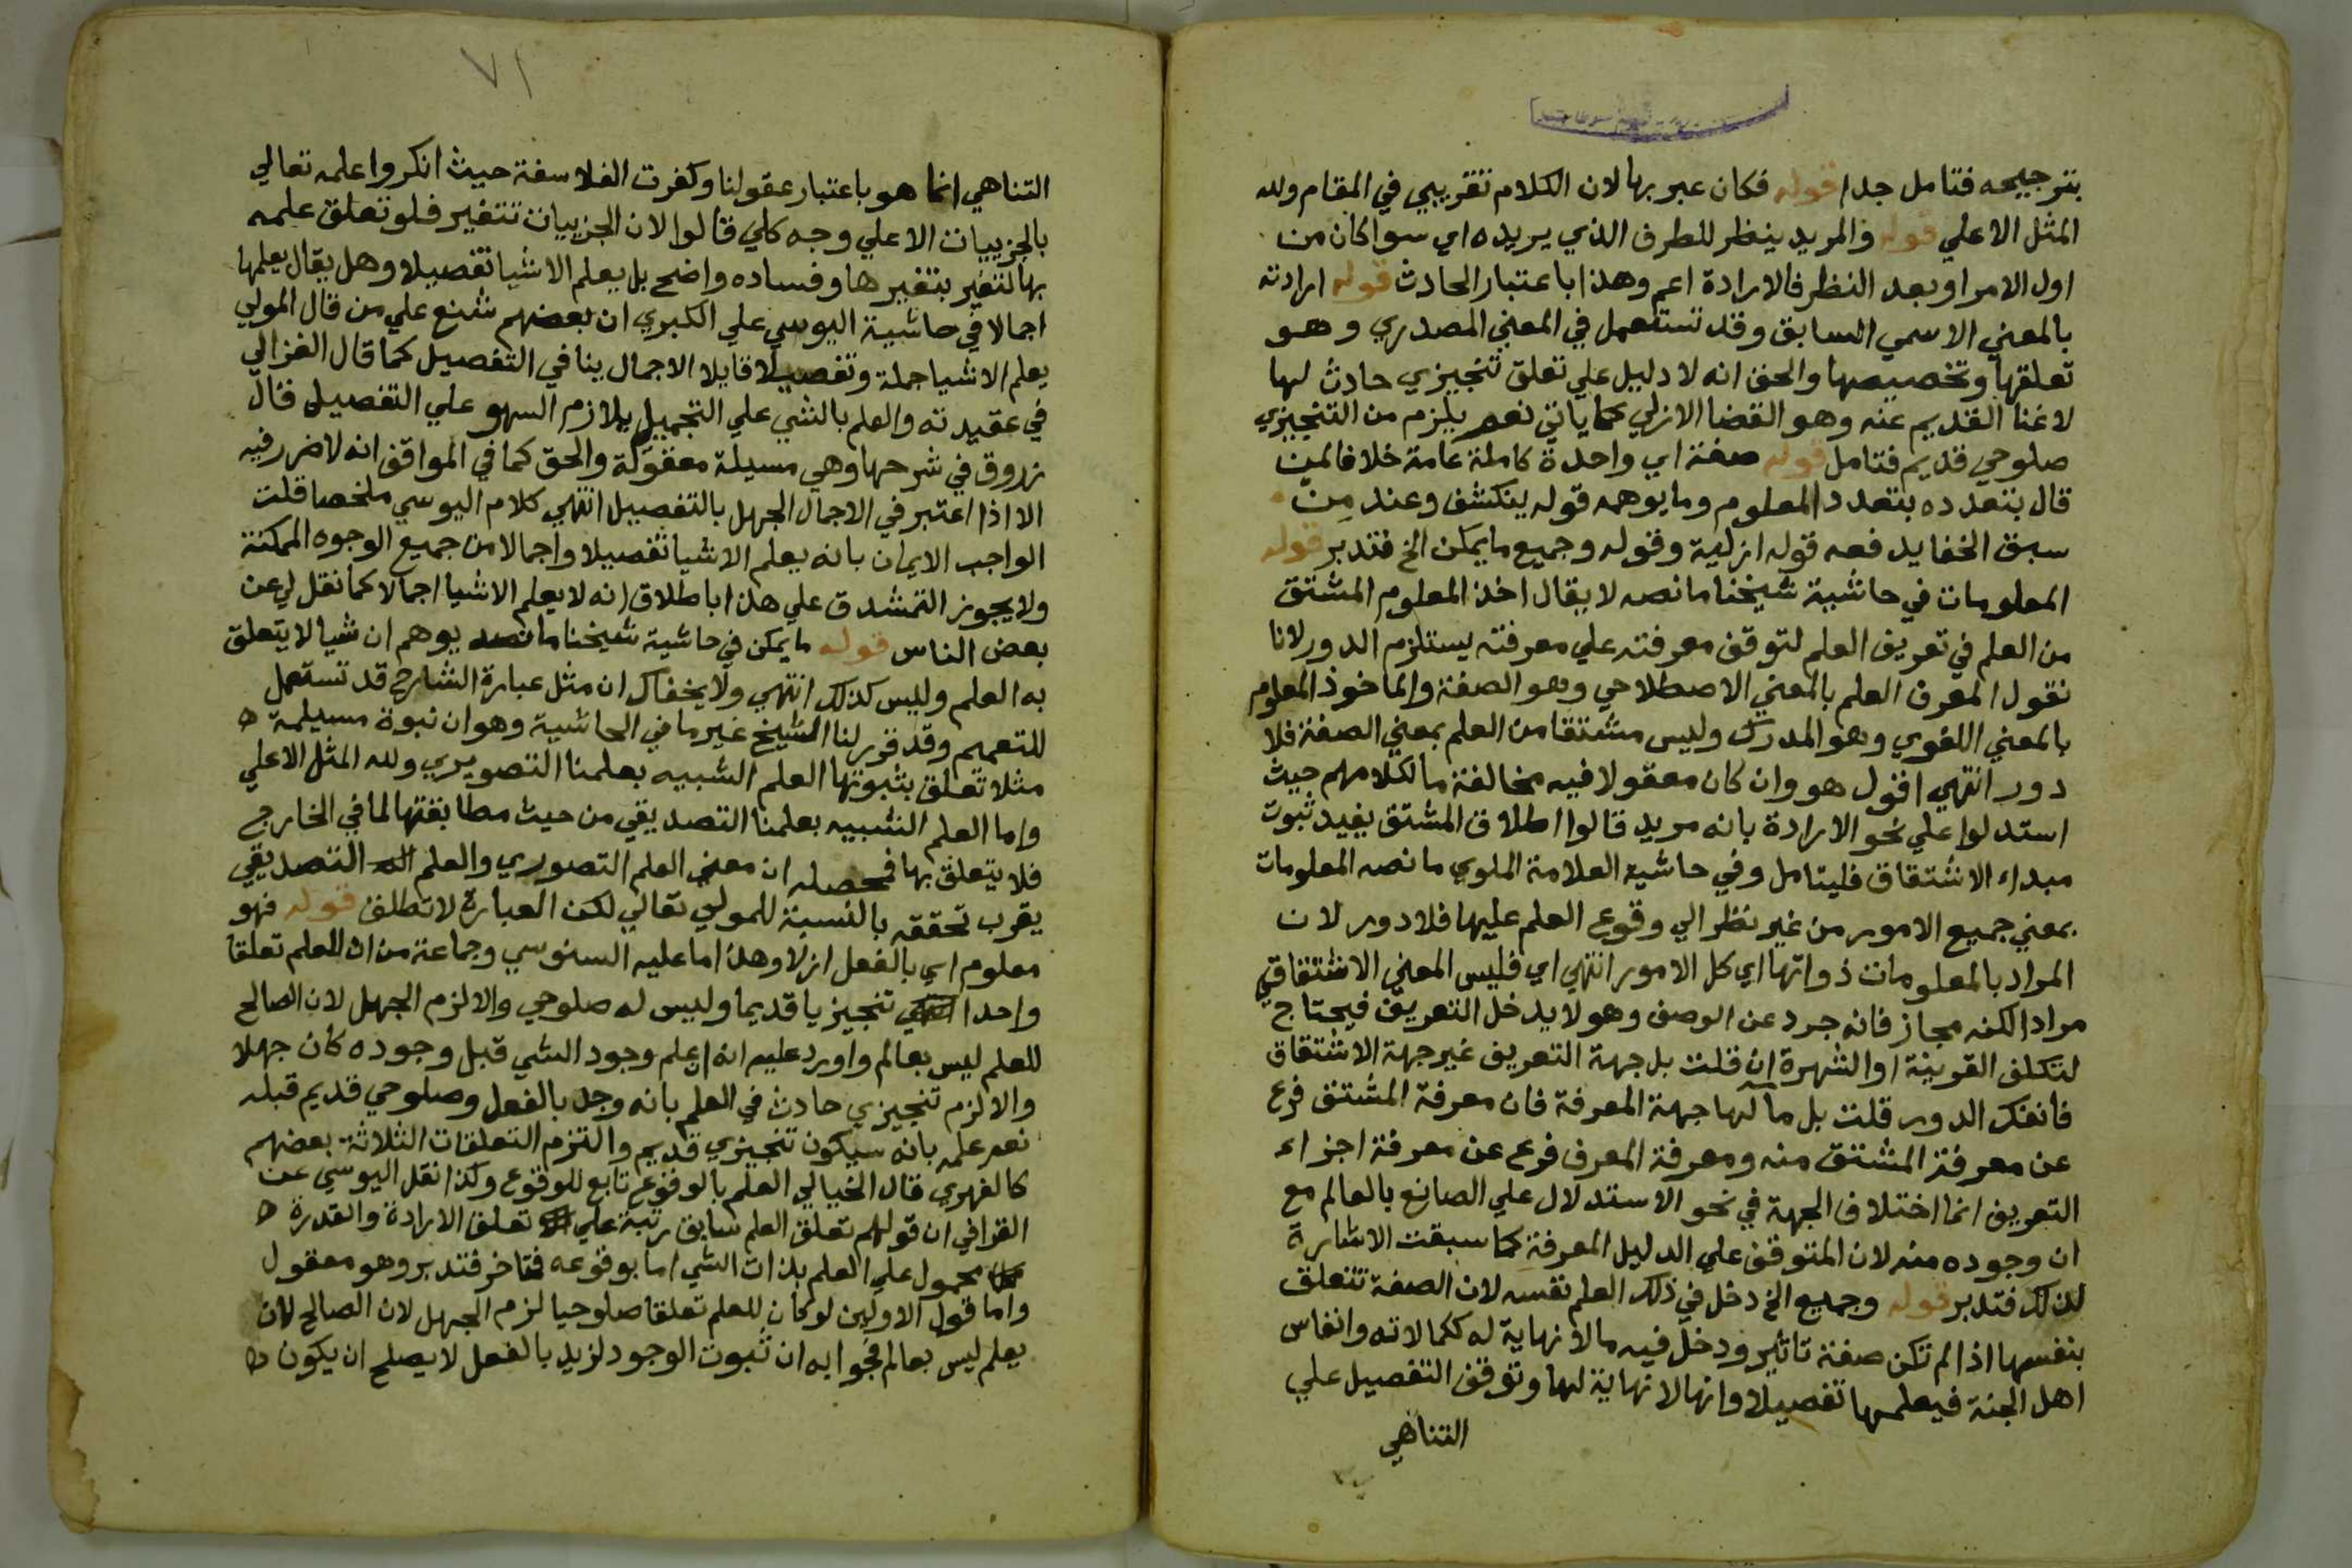 بترجيحه فتامل جدا قوله فكان عبر بها لان الكلام تقريبي في المقام ولله
المثل الاعلي قوله والمريد ينظر للطرف الذي يريده اي سوا كان من
اول الامر او بعد النظر فالارادة اعم وهذا باعتبار الحادث قوله ارادته
بالمعني الاسمي السابق وقد تستعمل في المعني المصدري وهو
تعلقها وتخصيصها والحق انه لا دليل علي تعلق تنجيزي حادث لها
لاغنا القديم عنه وهو القضا الازلي كما ياتي نعم يلزم من التنجيزي
صلوحي قديم فتامل قوله صفة اي واحدة كاملة عامة خلافا لمن
قال بتعدده بتعدد المعلوم وما يوهمه قوله ينكشف وعند من
سبق الخفا يدفعه قوله ازلية وقوله وجميع ما يمكن الخ فتدبر قوله
المعلومات في حاشية شيخنا ما نصه لا يقال اخذ المعلوم المشتق
من العلم في تعريف العلم لتوقف معرفته علي معرفته يستلزم الدور لانا
نقول المعرف العلم بالمعني الاصطلاحي وهو الصفة والماخوذ المعلوم
بالمعني اللغوي وهو المدرك وليس مشتقا من العلم بمعني الصفة فلا
دور انتهي اقول هو وان كان معقولا فيه مخالفة ما لكلامهم حيث
استدلوا علي نحو الارادة بانه مريد قالوا اطلاق المشتق يفيد ثبوت
مبداء الاشتقاق فليتامل وفي حاشية العلامة الملوي ما نصه المعلومات
بمعني جميع الامور من غير نظر الي وقوع العلم عليها فلا دور لان
المراد بالمعلومات ذواتها اي كل الامور انتهي اي فليس المعني الاشتقاقي
مرادا لكنه مجاز فانه جرد عن الوصف وهو لا يدخل التعريف فيحتاج
لتكلف القرينة او الشهرة ان قلت بل جهة التعريف غير جهة الاشتقاق
فانفك الدور قلت بل مآلها جهة المعرفة فان معرفة المشتق فرع
عن معرفة المشتق منه ومعرفة المعرف فرع عن معرفة اجزاء
التعريف انما اختلاف الجهة في نحو الاستدلال علي الصانع بالعالم مع
ان وجوده منه لان المتوقف علي الدليل المعرفة كما سبقت الاشارة
لذلك فتدبر قوله وجميع الخ دخل في ذلك العلم نفسه لان الصفة تتعلق
بنفسها اذا لم تكن صفة تاثير ودخل فيه ما لا نهاية له ككمالاته وانفاس
اهل الجنة فيعلمها تفصيلا وانها لا نهاية لها وتوقف التفصيل علي
التناهي
٧١
التناهي انما هو باعتبار عقولنا وكفرت الفلاسفة حيث انكروا علمه تعالي
بالجزييات الا علي وجه كلي قالوا لان الجزييات تتغير فلو تعلق علمه
بها لتغير بتغيرها وفساده واضح بل يعلم الاشيا تفصيلا وهل يقال يعلمها
اجمالا في حاشية اليوسي علي الكبري ان بعضهم شنع علي من قال المولي
يعلم الاشيا جملة وتفصيلا قايلا الاجمال ينافي التفصيل كما قال الغزالي
في عقيدته والعلم بالشي علي التجميل يلازم السهو علي التفصيل قال
زروق في شرحها وهي مسيلة معقولة والحق كما في المواقف انه لا ضرر فيه
الا اذا اعتبر في الاجمال الجهل بالتفصيل انتهي كلام اليوسي ملخصا قلت
الواجب الايمان بانه يعلم الاشيا تفصيلا واجمالا من جميع الوجوه الممكنة
ولا يجوز التمشدق علي هذا باطلاق انه لا يعلم الاشيا اجمالا كما نقل لي عن
بعض الناس قوله ما يمكن في حاشية شيخنا ما نصه يوهم ان شيا لا يتعلق
به العلم وليس كذلك انتهي ولا يخفاك ان مثل عبارة الشارح قد تستعمل
للتعميم وقد قرر لنا الشيخ غير ما في الحاشية وهو ان نبوة مسيلمة
مثلا تعلق بثبوتها العلم الشبيه بعلمنا التصويري ولله المثل الاعلي
واما العلم الشبيه بعلمنا التصديقي من حيث مطابقتها لما في الخارج
فلا يتعلق بها فمحصله ان معني العلم التصوري والعلم التصديقي
يقرب تحققه بالنسبة للمولي تعالي لكن العبارة لا تطلق قوله فهو
معلوم اي بالفعل ازلا وهذا ما عليه السنوسي وجماعة من ان للعلم تعلقا
واحدا تنجيزيا قديما وليس له صلوحي والا لزم الجهل لان الصالح
للعلم ليس بعالم واورد عليه انه ان علم وجود الشي قبل وجوده كان جهلا
والا لزم تنجيزي حادث في العلم بانه وجد بالفعل وصلوحي قديم قبله
نعم علمه بانه سيكون تنجيزي قديم والتزم التعلقات الثلاثة بعضهم
كالفهري قال الخيالي العلم بالوقوع تابع للوقوع وكذا نقل اليوسي عن
القرافي ان قولهم تعلق العلم سابق رتبة علي تعلق الارادة والقدرة
محمول علي العلم بذات الشي اما بوقوعه فتاخر فتدبر وهو معقول
واما قول الاولين لو كان للعلم تعلقا صلوحيا لزم الجهل لان الصالح لان
يعلم ليس بعالم فجوابه ان ثبوت الوجود لزيد بالفعل لا يصلح ان يكون